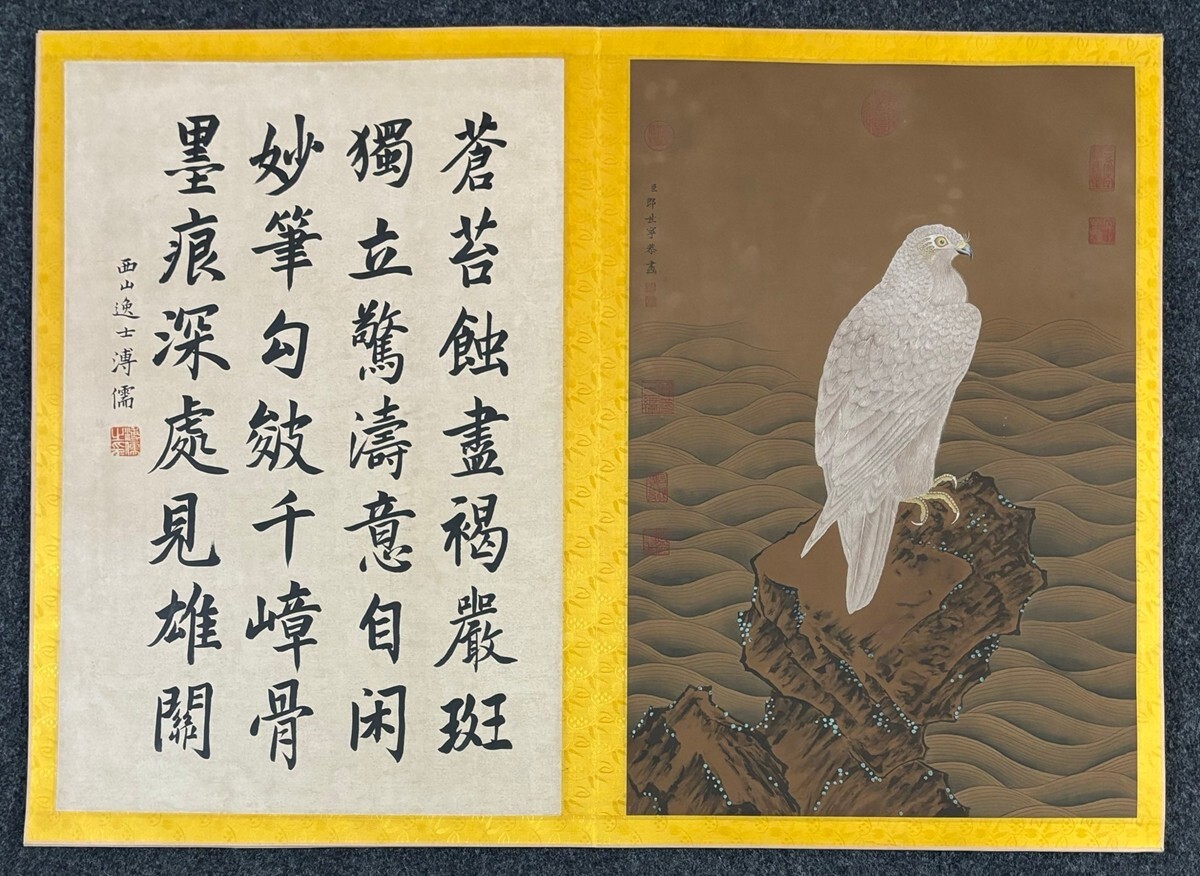 蒼苔蝕盡褐巖斑
獨立驚濤意自闲
妙筆勾皴千嶂骨
墨痕深處見雄關
西山逸士溥儒
臣郎世寧恭畫